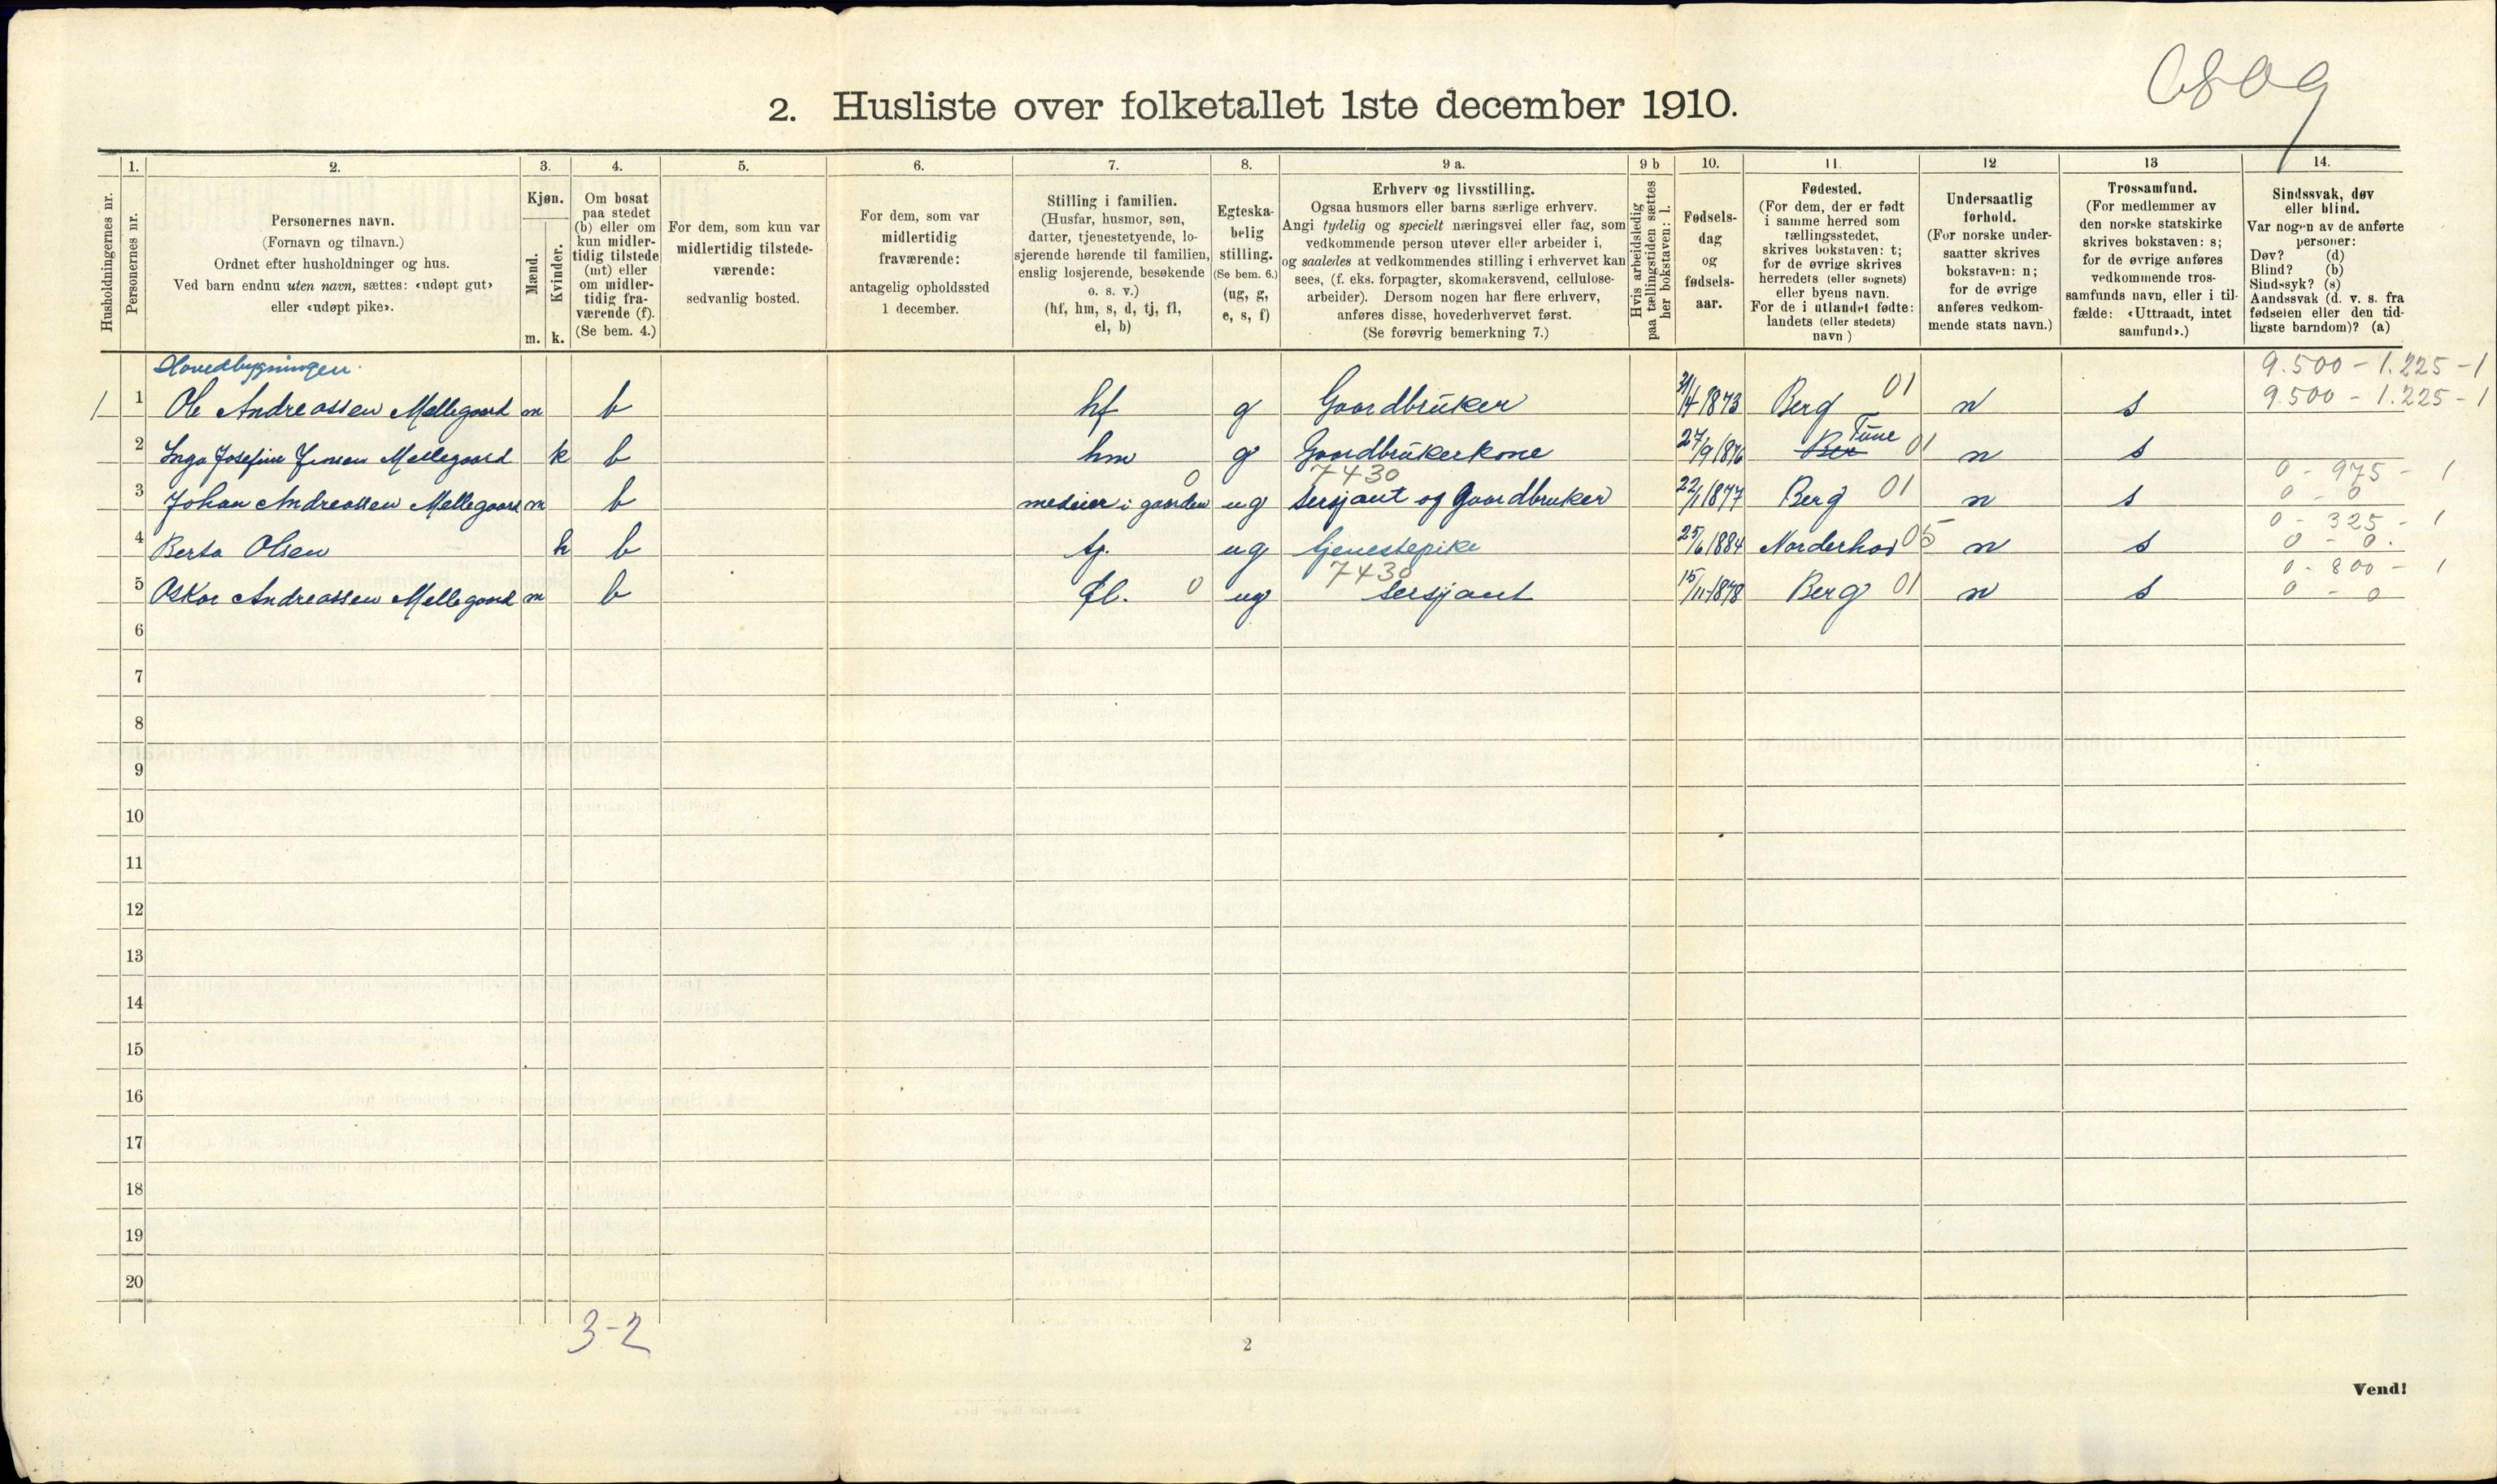 Osag
2. Husliste over folketallet 1ste december 1910.
1. 2. 3. 4. 5. 6. 7. 8. 9 a. 9 b 10. 11. 12. 13 14.
Husholdningernes nr.
Personernes nr.
Personernes navn.
(Fornavn og tilnavn.)
Ordnet efter husholdninger og hus.
Ved barn endnu uten navn, sættes: «udøpt gut»
eller «udøpt pike».
Kjøn.
Mænd.
Kvinder.
m. k.
Om bosat
paa stedet
(b) eller om
kun midler-
tidig tilstede
(mt) eller
om midler-
tidig fra-
værende (f).
(Se bem. 4.)
For dem, som kun var
midlertidig tilstede-
værende:
sedvanlig bosted.
For dem, som var
midlertidig
fraværende:
antagelig opholdssted
1 december.
Stilling i familien.
(Husfar, husmor, søn,
datter, tjenestetyende, lo-
sjerende hørende til familien,
enslig losjerende, besøkende
o. s. v.)
(hf, hm, s, d, tj, fl,
el, b)
Egteska-
belig
stilling.
(Se bem. 6.)
(ug, g,
e, s, f)
Erhverv og livsstilling.
Ogsaa husmors eller barns særlige erhverv.
Angi tydelig og specielt næringsvei eller fag, som
vedkommende person utøver eller arbeider i,
og saaledes at vedkommendes stilling i erhvervet kan
sees, (f. eks. forpagter, skomakersvend, cellulose-
arbeider). Dersom nogen har flere erhverv,
anføres disse, hovederhvervet først.
(Se forøvrig bemerkning 7.)
Hvis arbeidsledig
paa tællingstiden sættes
her bokstaven: l.
Fødsels-
dag
og
fødsels-
aar.
Fødested.
(For dem, der er født
i samme herred som
tællingsstedet,
skrives bokstaven: t;
for de øvrige skrives
herredets (eller sognets)
eller byens navn.
For de i utlandet fødte:
landets (eller stedets)
navn)
Undersaatlig
forhold.
(For norske under-
saatter skrives
bokstaven: n;
for de øvrige
anføres vedkom-
mende stats navn.)
Trossamfund.
(For medlemmer av
den norske statskirke
skrives bokstaven: s;
for de øvrige anføres
vedkommende tros-
samfunds navn, eller i til-
fælde: «Uttraadt, intet
samfund».)
Sindssvak, døv
eller blind.
Var nogen av de anførte
personer:
Døv? (d)
Blind? (b)
Sindssyk? (s)
Aandssvak (d. v. s. fra
fødselen eller den tid-
ligste barndom)? (a)
Hovedbygningen. 9.500 - 1.225 - 1
1 1 Ole Andreassen Mellegaard m b hf g Gaardbruker /4 1873 Berg 01 n s 9.500 - 1.225 - 1
2 Inga Josefine Jensen Mellegaard k b hm g Gaardbrukerkone 27/9 1876 Ber Tune 01 n s
0 7430 0 - 975 - 1
3 Johan Andreassen Mellegaard m b medeier i gaarden ug Sersjant og Gaardbruker 22/1 1877 Berg 01 n s 0 - 0
0 - 325 - 1
4 Berta Olsen k b tj. ug tjenestepike 25/6 1884 Norderhov 05 n s 0 - 0.
7430 0 - 800 - 1
5 Oskar Andreassen Mellegaard m b fl. 0 ug Sersjant 15/11 1878 Berg 01 n s 0 - 0
6
7
8
9
10
11
12
13
14
15
16
17
18
19
20
3-2
2
Vend!